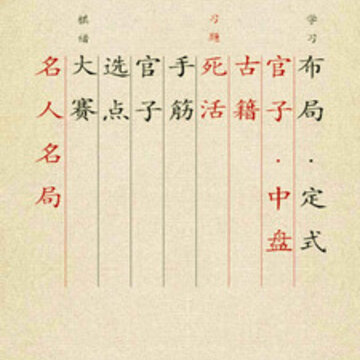 学习
布局·定式
官子·中盘
古籍
习题
死活
手筋
官子
选点
棋谱
大赛
名人名局